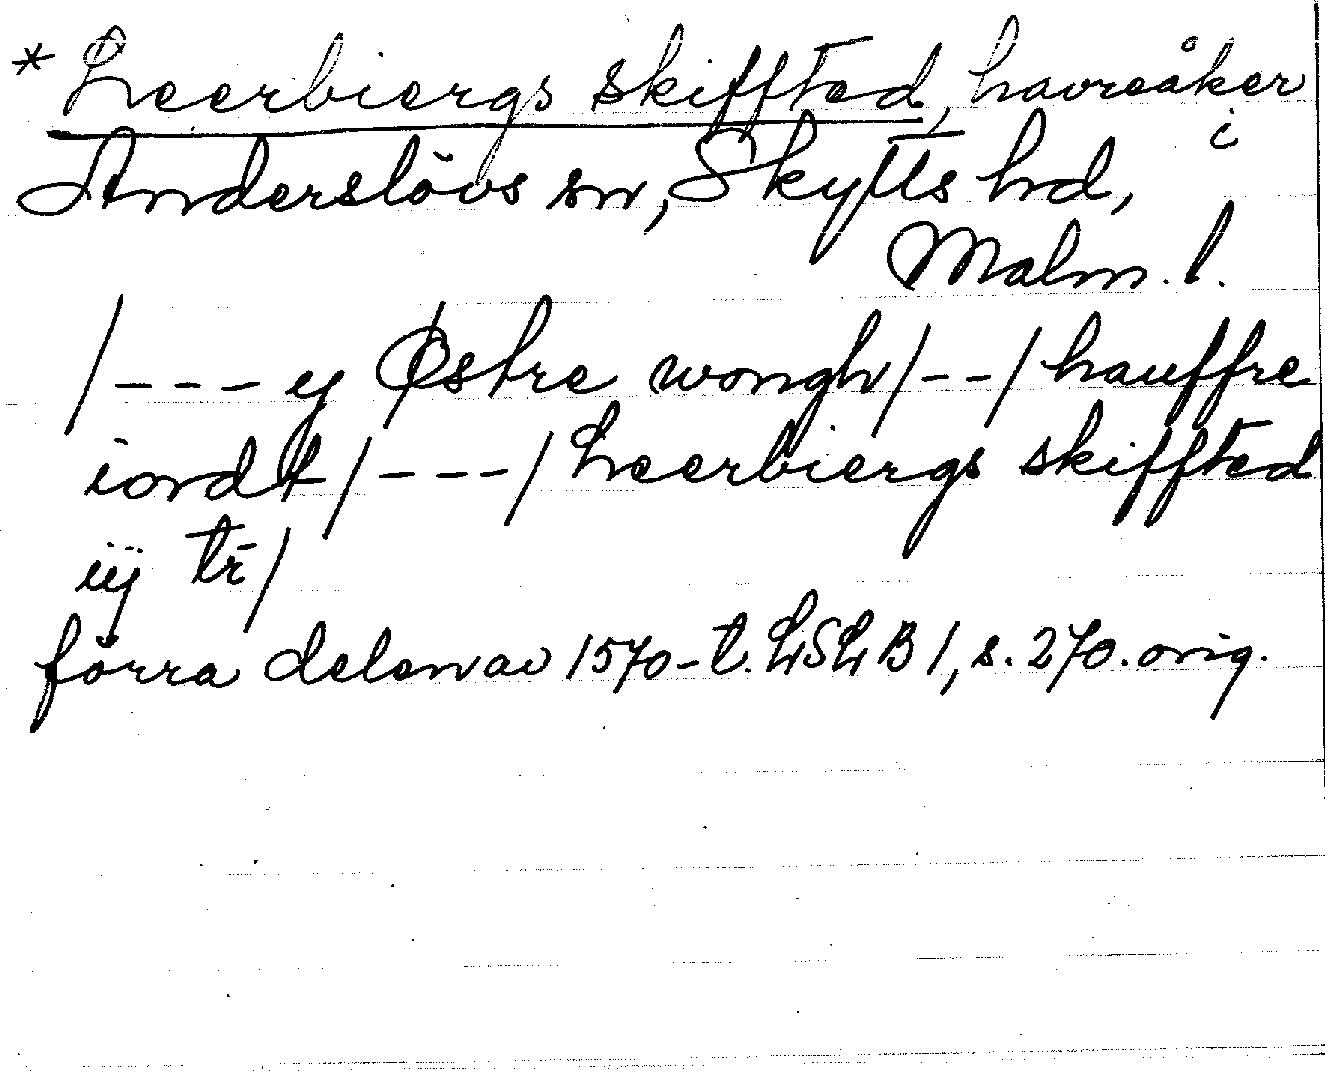 * Leerbiergs skiffted, havreåker
i
Anderslövs sn, Skytts hd,
Malm. l.
/---y Østre wongh/--/hauffre
iordt/---/Leerbiergs skiffted
iij tr̄/
förra delen av 1570-t. LSLB 1, s. 270. orig.